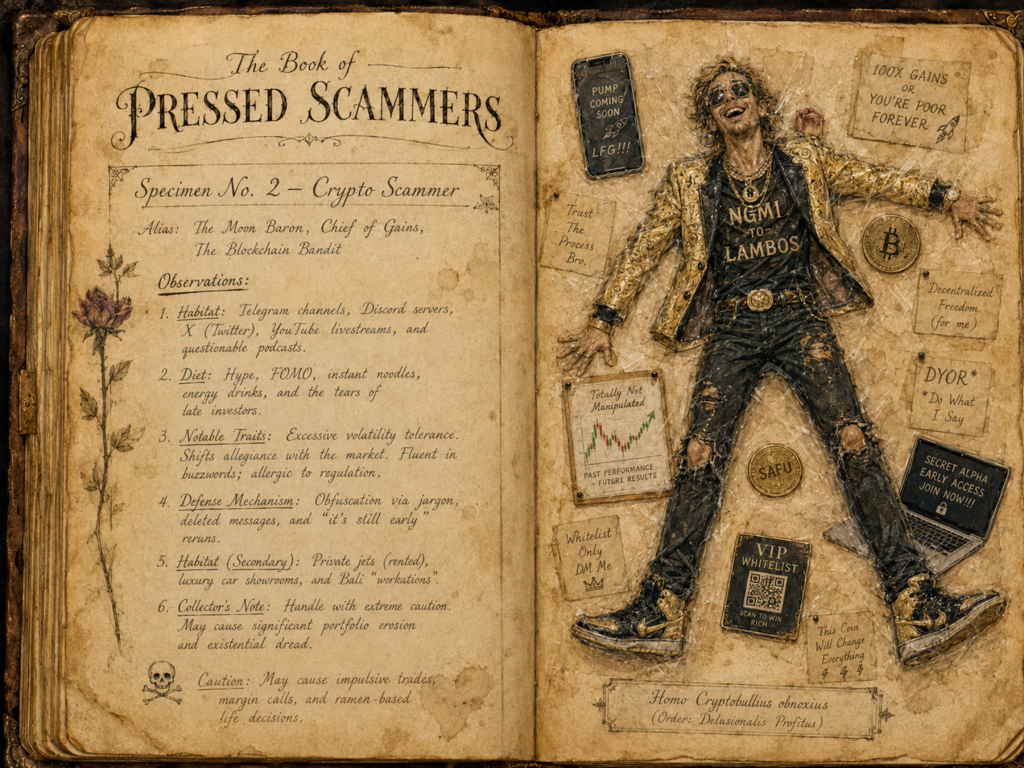 The Book of
PRESSED SCAMMERS
Specimen No. 2 – Crypto Scammer
Alias: The Moon Baron, Chief of Gains,
The Blockchain Bandit
Observations:
1. Habitat: Telegram channels, Discord servers,
X (Twitter), YouTube livestreams, and
questionable podcasts.
2. Diet: Hype, FOMO, instant noodles,
energy drinks, and the tears of
late investors.
3. Notable Traits: Excessive volatility tolerance.
Shifts allegiance with the market. Fluent in
buzzwords; allergic to regulation.
4. Defense Mechanism: Obfuscation via jargon,
deleted messages, and "it's still early"
reruns.
5. Habitat (Secondary): Private jets (rented),
luxury car showrooms, and Bali "workations".
6. Collector's Note: Handle with extreme caution.
May cause significant portfolio erosion
and existential dread.
Caution: May cause impulsive trades,
margin calls, and ramen-based
life decisions.
PUMP
COMING
SOON
LFG!!!
100X GAINS
OR
YOU'RE POOR
FOREVER
NGMI
TO
LAMBOS
Trust
The
Process
Bro.
₿
Decentralized
Freedom
(for me)
Totally Not
Manipulated
PAST PERFORMANCE
= FUTURE RESULTS
DYOR*
*Do What
I Say
SAFU
SECRET ALPHA
EARLY ACCESS
JOIN NOW!!!
Whitelist
Only
DM Me
VIP
WHITELIST
SCAN TO WIN
RICH
This Coin
Will Change
Everything
Homo Cryptobullius obnoxius
(Order: Delusionalis Profitus)